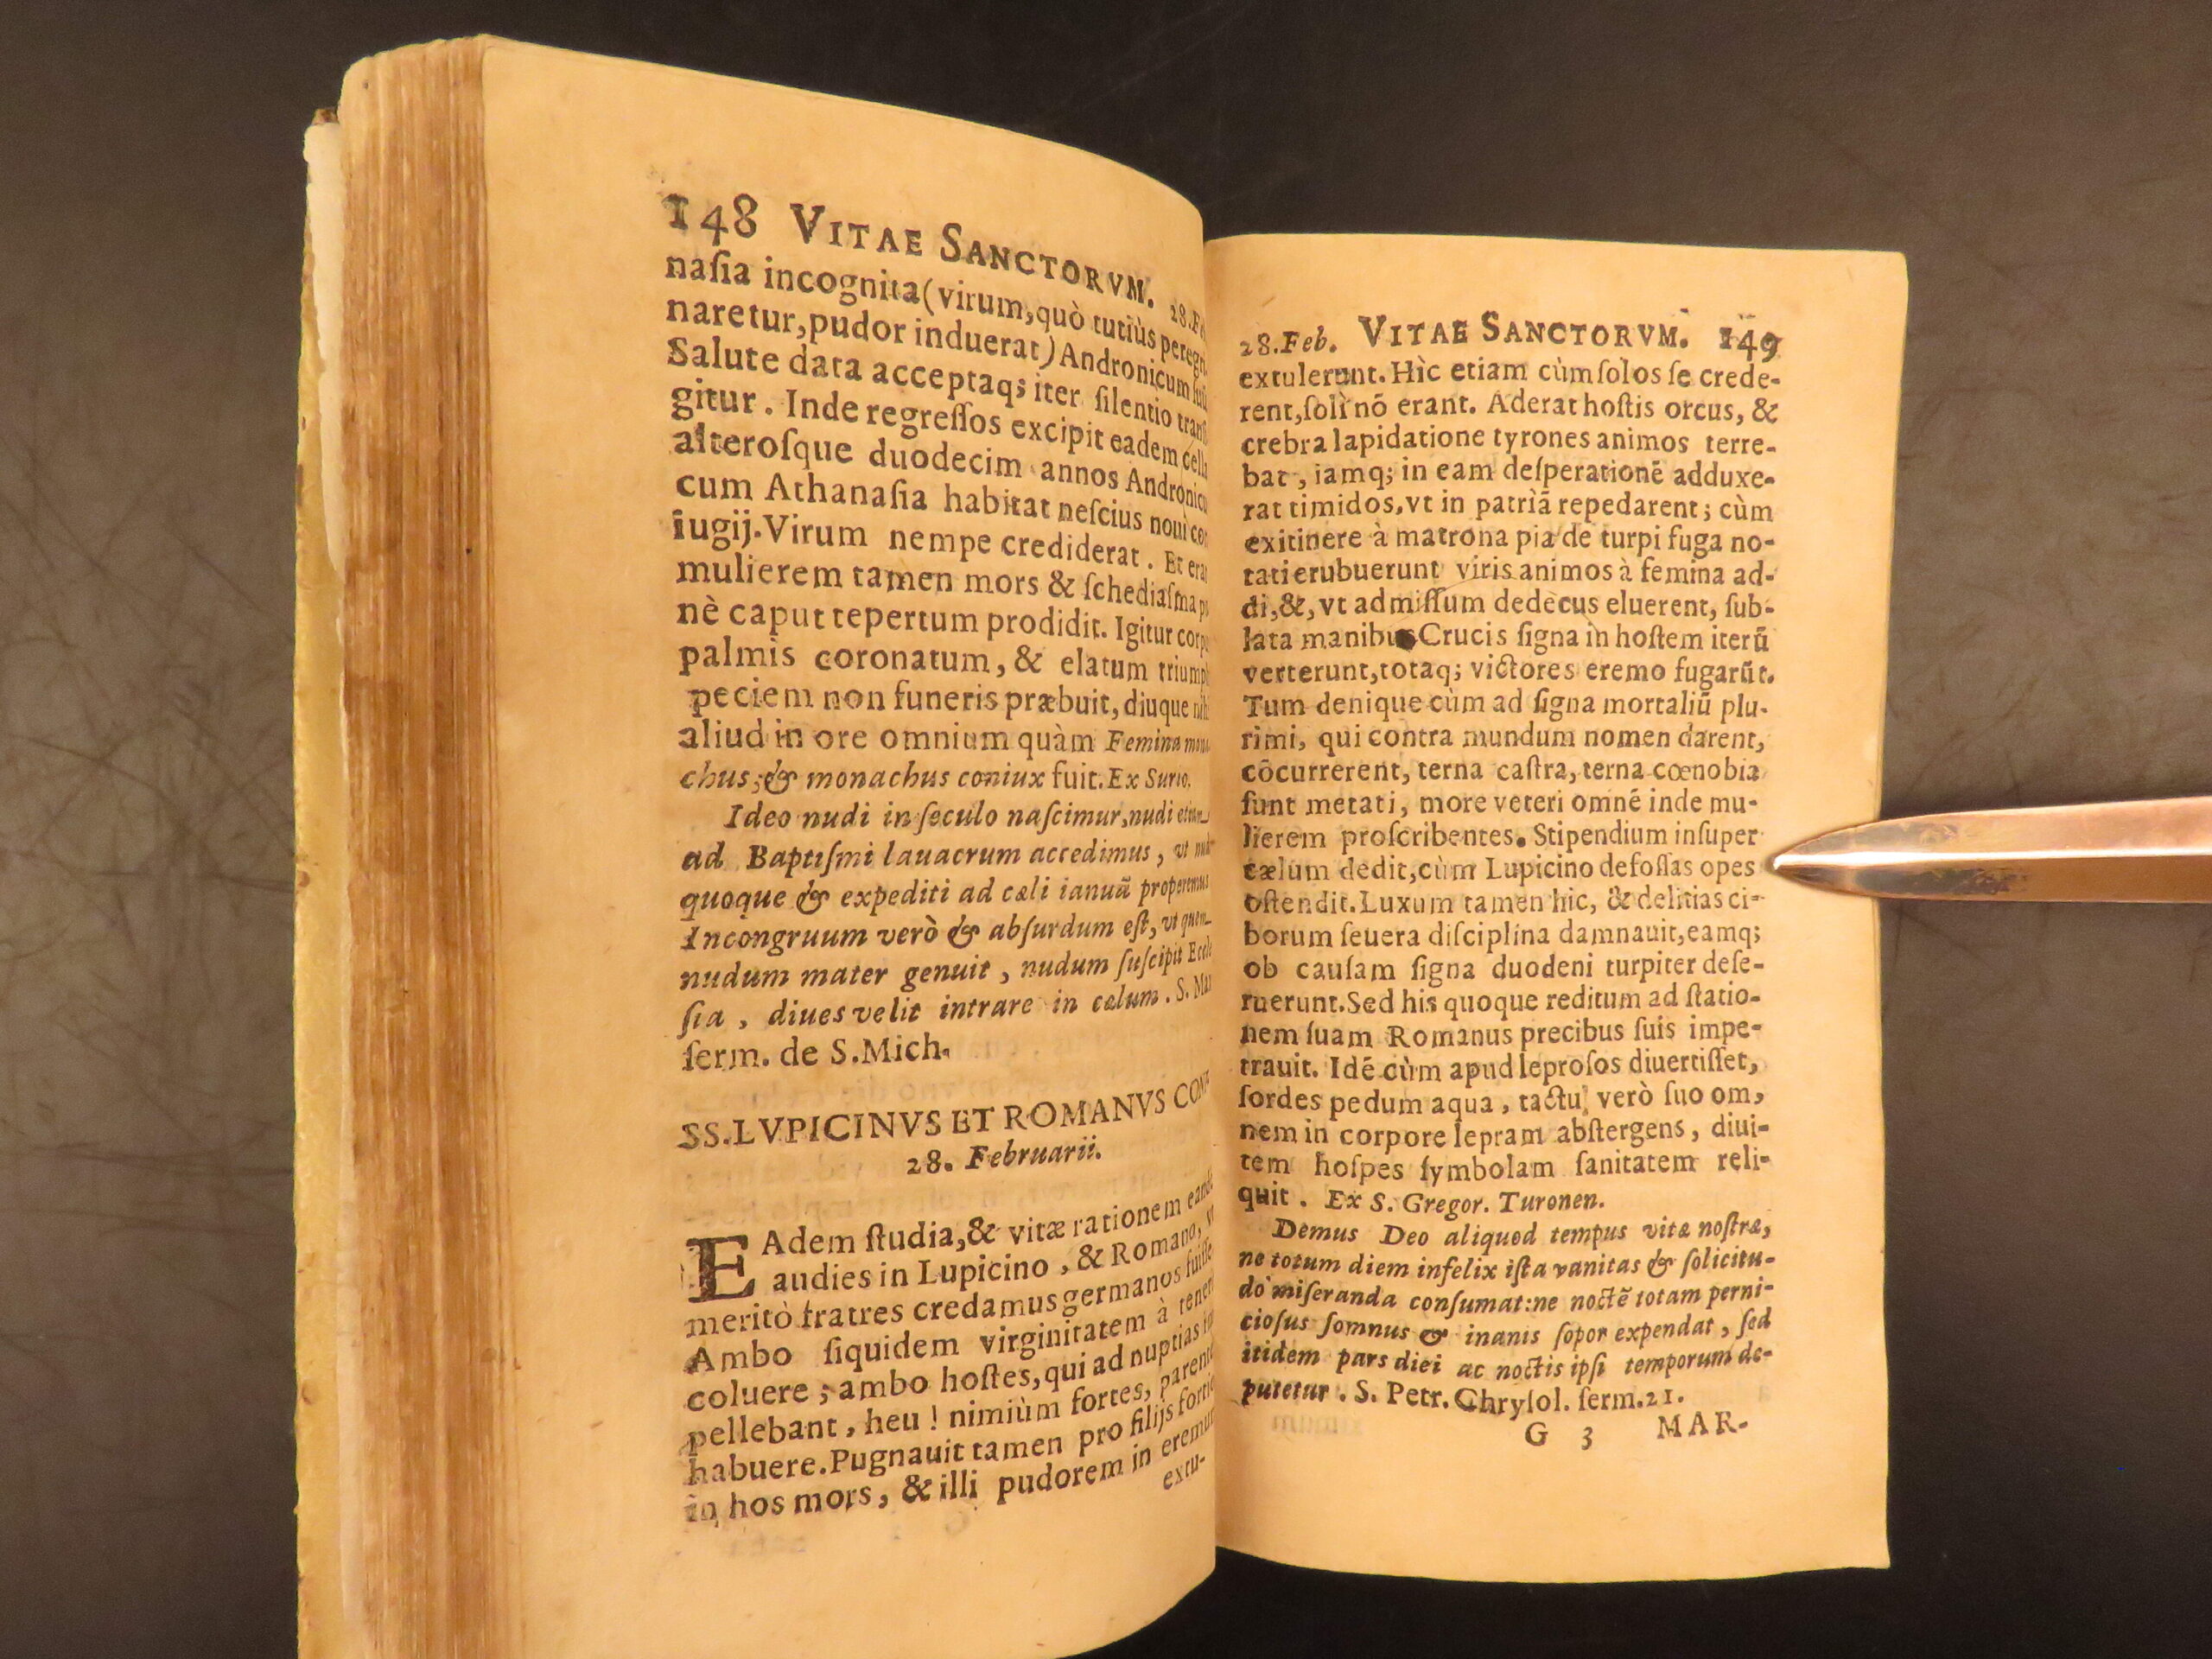 148 VITAE SANCTORVM. 28.Fe
naſia incognita (virum, quò tutiùs peregri
naretur, pudor induerat) Andronicum
Salute data acceptaq; iter ſilentio
gitur. Inde regreſſos excipit eadem
alteroſque duodecim annos
cum Athanaſia habitat neſcius noui
iugij. Virum nempe crediderat. Et
mulierem tamen mors & ſchediaſma
nè caput repertum prodidit. Igitur
palmis coronatum, & elatum
peciem non funeris præbuit, diuque
aliud in ore omnium quàm Femina
chus; & monachus coniux fuit. Ex Surio.
Ideo nudi in ſeculo naſcimur, nudi
ad Baptiſmi lauacrum accedimus, vt
quoque & expediti ad cæli ianuã properemus
Incongruum verò & abſurdum eſt, vt quem
nudum mater genuit, nudum ſuſcipit
ſia, diues velit intrare in cælum. S.
ſerm. de S. Mich.
SS. LVPICINVS ET ROMANVS
28. Februarii.
EAdem ſtudia, & vitæ rationem
audies in Lupicino, & Romano,
meritò fratres credamus germanos
Ambo ſiquidem virginitatem à
coluere; ambo hoſtes, qui ad nuptias
pellebant, heu! nimiùm fortes,
habuere. Pugnauit tamen pro filijs
in hos mors, & illi pudorem in
extu-
28. Feb. VITAE SANCTORVM. 149
extulerunt. Hìc etiam cùm ſolos ſe crede-
rent, ſoli nõ erant. Aderat hoſtis orcus, &
crebra lapidatione tyrones animos terre-
bat, iamq; in eam deſperationẽ adduxe-
rat timidos, vt in patriã repedarent; cùm
ex itinere à matrona pia de turpi fuga no-
tati erubuerunt viris animos à femina ad-
di, &, vt admiſſum dedecus eluerent, ſub-
lata manibus Crucis ſigna in hoſtem iterũ
verterunt, totaq; victores eremo fugarũt.
Tum denique cùm ad ſigna mortaliũ plu-
rimi, qui contra mundum nomen darent,
cõcurrerent, terna caſtra, terna cœnobia
ſunt metati, more veteri omnẽ inde mu-
lierem proſcribentes. Stipendium inſuper
cælum dedit, cùm Lupicino defoſſas opes
oſtendit. Luxum tamen hic, & delitias ci-
borum ſeuera diſciplina damnauit, eamq;
ob cauſam ſigna duodeni turpiter deſe-
ruerunt. Sed his quoque reditum ad ſtatio-
nem ſuam Romanus precibus ſuis impe-
trauit. Idẽ cùm apud leproſos diuertiſſet,
ſordes pedum aqua, tactu verò ſuo om,
nem in corpore lepram abſtergens, diui-
tem hoſpes ſymbolam ſanitatem reli-
quit. Ex S. Gregor. Turonen.
Demus Deo aliquod tempus vitæ noſtræ,
ne totum diem infelix iſta vanitas & ſolicitu-
do miſeranda conſumat: ne noctẽ totam perni-
cioſus ſomnus & inanis ſopor expendat, ſed
itidem pars diei ac noctis ipſi temporum de-
putetur. S. Petr. Chryſol. ſerm. 21.
G 3 MAR-